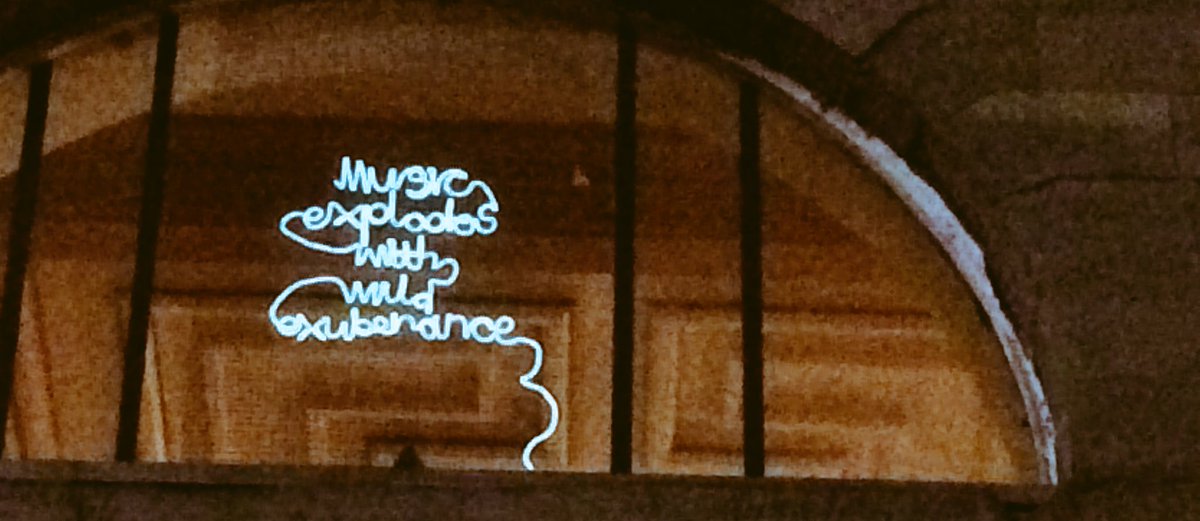 Music
explodes
with
wild
exuberance